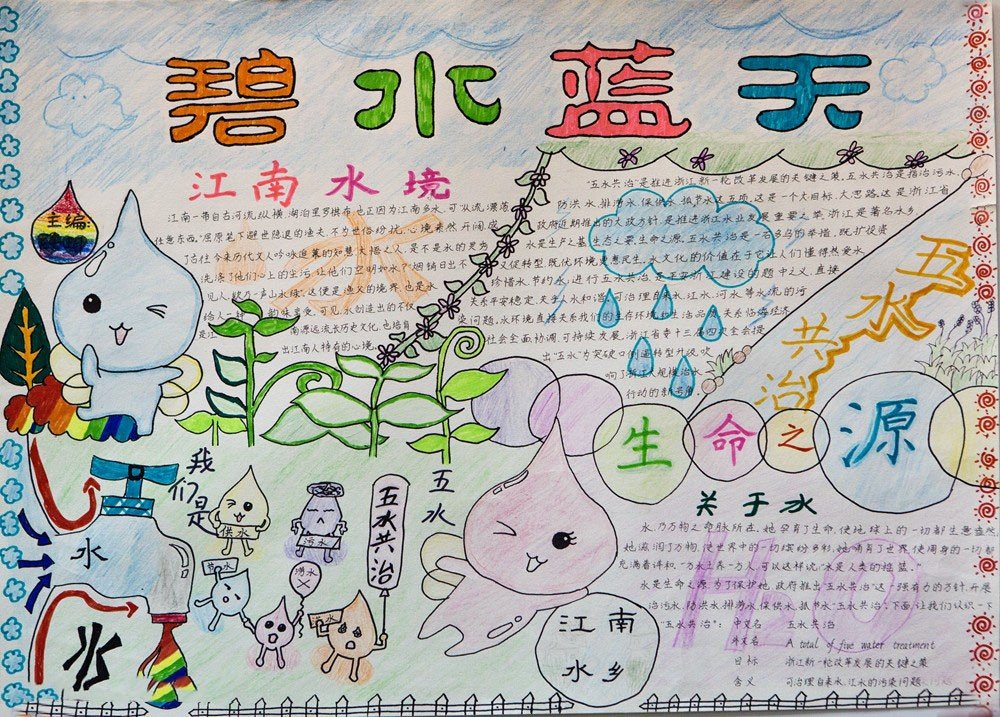 碧水蓝天
主编:
江南水境
江南一带自古河流纵横,湖泊星罗棋布,也正因为江南多水,可从流漂荡
任意东西。"屈原笔下避世隐退的渔夫,不为世俗纷扰,心境素然开阔
古往今来历代文人吟咏追寞的部慧大悟之人,是不是水的灵为
洗涤了他们心上的尘污,让他们空明如水?"烟销日出不
见人,欸乃一声山水绿",这便是渔父的境界,也是水
给人一种 韵味享受,可见,水创造出的不仅
是江 南源远流长历史文化,也培育
出江南人特有的心境。
"五水共治"是推进浙江新一轮改革发展的关键之策,五水共治是指治污水、
防洪水、排涝水、保供水、抓节水这五项,这是一个大目标,大思路,这是浙江省
政府近期推出的大政方针,是推进浙江水业发展重要之举,浙江是著名水乡
水是生产之基,生态之要,生命之源。五水共治是一石多鸟的举措,既扩投资
又促转型,既优环境更惠民生,水文化的价值在于它让人们懂得热爱水、
珍惜水、节约水,进行五水共治,是平安浙江建设的题中之义,直接
关系平安稳定,关乎人水和谐,可治理自来水、江水、河水等水流的污
染问题,水环境直接关系我们的生存环境和生活品质,关系临海经济
社会全面协调,可持续发展,浙江省委十三届四次全会提
出"五水"为突破口倒逼转型升级,吹
响了浙江大规模治水
行动的新号角。
五水
共治
生命之源
关于水
水,乃万物之命脉所在,她孕育了生命,使地球上的一切都生意盎然,
她滋润了万物,使世界中的一切缤纷多彩,她哺育了世界,使周身的一切都
充满着祥和,"一方水土养一方人",可以这样说:"水是人类的摇篮。"
水是生命之源,为了保护她,政府推出"五水共治"这一强有力的方针,开展
治污水、防洪水、排涝水、保供水、抓节水"五水共治",下面,让我们认识一下
"五水共治": 中文名 五水共治
外文名 A total of five water treatment
目标 浙江新一轮改革发展的关键之策
含义 可治理自来水、江水的污染问题
H2O
我们是
五水
供水
污水
节水
涝水
洪水
五水共治
水
水
江南
水乡